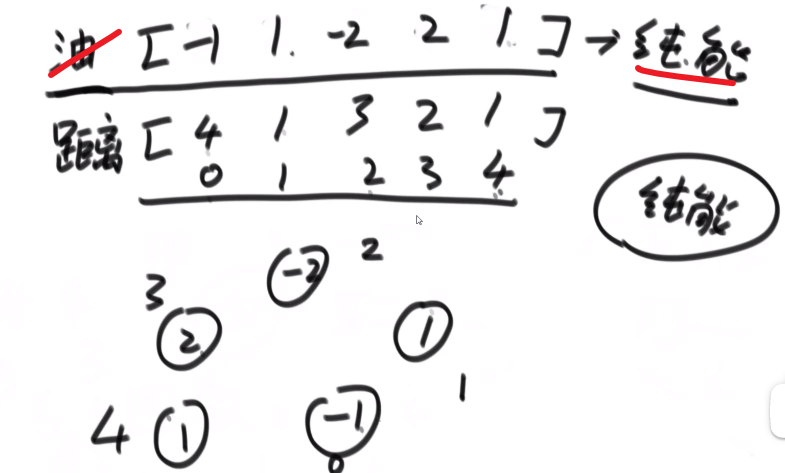 油 [ -1 1 -2 2 1 ] → 纯能
距离 [ 4 1 3 2 1 ]
0 1 2 3 4
纯能
-2 2
3
2 1
1
4 1 -1
0